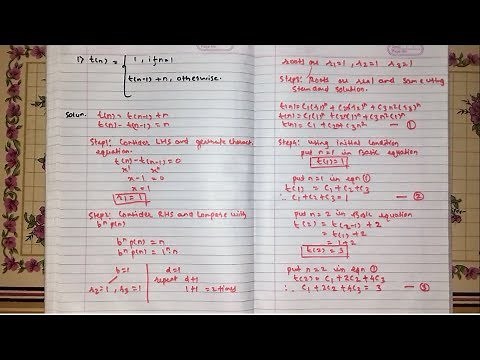 1) t(n) = { 1, if n=1
t(n-1)+n, otherwise.
Solun. t(n) = t(n-1)+n
t(n)-t(n-1) = n
Step1: Consider LHS and generate charact.
equation.
t(n)-t(n-1)=0
x¹ x⁰
x-1 = 0
x = 1
r₁ = 1
Step2: Consider RHS and Compare with
bⁿp(n)
bⁿp(n) = n
bⁿp(n) = 1ⁿ.n
b=1 d=1
repeat d+1
r₂=1, r₃=1 1+1 = 2 times
roots are r₁=1, r₂=1 r₃=1
Step3: Roots are real and same using
standard solution.
t(n) = C₁(r₁)ⁿ + C₂n(r₂)ⁿ + C₃n²(r₃)ⁿ
t(n) = C₁(1)ⁿ + C₂n(1)ⁿ + C₃n²(1)ⁿ
t(n) = C₁ + C₂n + C₃n² — ①
Step4: using initial condition
put n=1 in Basic equation
t(1)=1
put n=1 in eqn ①
t(1) = C₁+C₂+C₃
∴ C₁+C₂+C₃=1 — ②
put n=2 in Basic equation
t(2) = t(2-1)+2
= t(1)+2
= 1+2
t(2) = 3
put n=2 in eqn ①
t(2) = C₁+2C₂+4C₃
∴ C₁+2C₂+4C₃ = 3 — ③